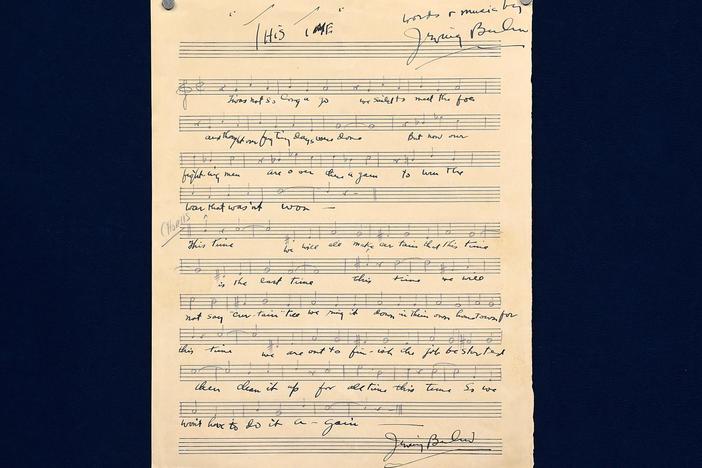 "THiS TiME"
words & music by
Irving Berlin
Twas not so long a go we sailed to meet the foe
and thought our fighting days were done But now our
fight-ing men are over there a gain to win the
war that wasn't won —
CHORUS
This time we will all make cer tain that this time
is the last time this time we will
not say "cur-tain" till we ring it down in their own home town for
this time we are out to fin-ish the job we started
then clean it up for all time this time so we
won't have to do it a-gain
Irving Berlin